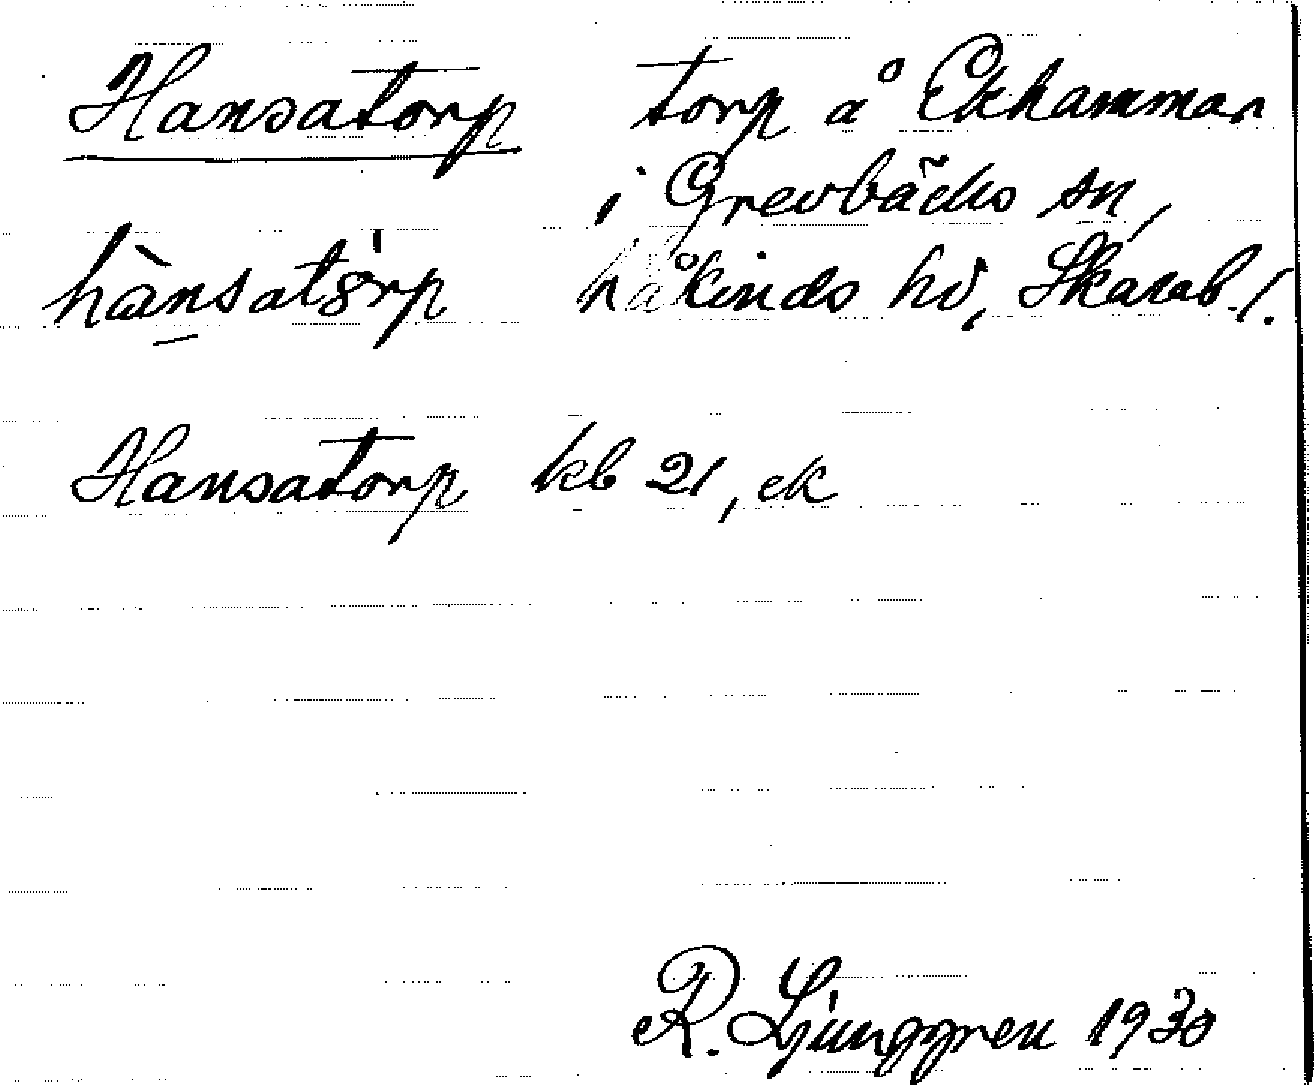 Hansatorp torp å Ekhammar
i Grevbäcks sn,
hànsatórp håkinds hd, Skarab. l.
Hansatorp kb 21, ek
R. Ljunggren 1930